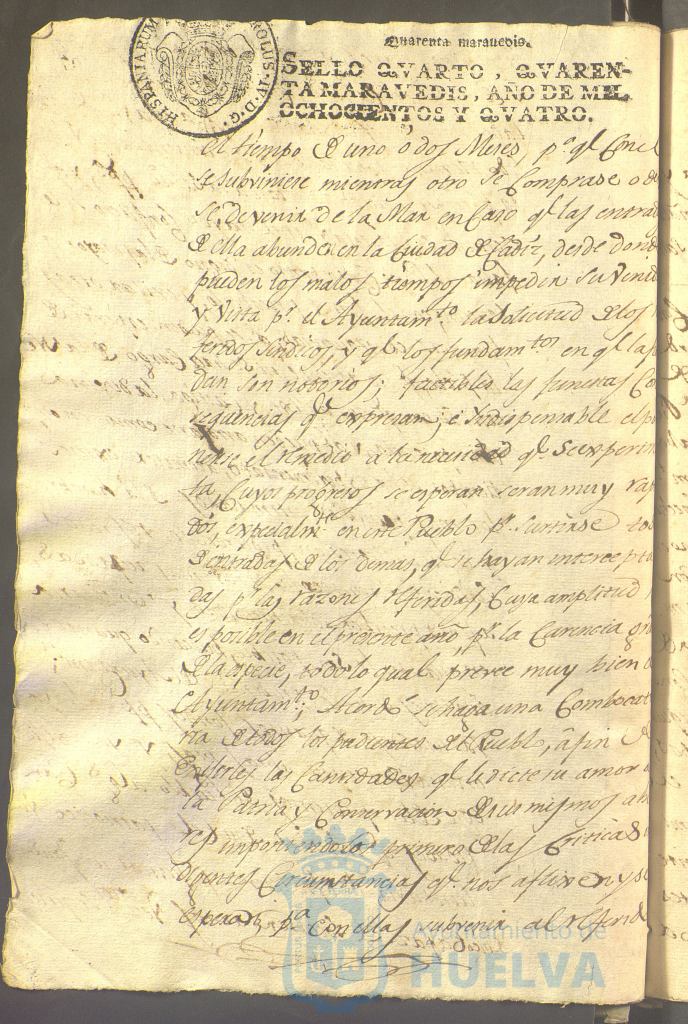 HISPANIARUM
CAROLUS·IV·D·G·
Quarenta marauedis.
SELLO QVARTO, QVAREN-
TA MARAVEDIS, AÑO DE MIL
OCHOCIENTOS Y QVATRO.
el tiempo de uno o dos Meses, pª ql Con el
se subviniese mientras otro se Comprase o
se, de venir de la Mar en Caso ql las entra
de ella abunde en la Ciudad de Cadiz, desde dond
pueden los malos tiempos impedir su Veni
y Vista pr. el Ayuntamto. la Solicitud de los
feridos Sindicos, y ql los fundamtos en ql las
dan son notorios; factibles las funestas Co
sequencias ql expresan; e Yndispensable el p
nerse el remedio a la necesidad ql. se experim
ta, Cuyos progresos se esperan seran muy rap
dos, expecialmte en este Pueblo pr. surtirse
de entradas de los demas, ql se hayan intercepta
das pr las razones referidas, Cuya amplitud
es posible en el presente año, pr. la Carencia
de la especie, todo lo qual prevee muy bien
Ayuntamto; Acordó se haga una Combocat
ria de todos los pudientes del Pueblo, a fin
las Cantidades ql le dicte su amor
la Patria y Conservacion de sus mismos
res imponiendolos primero de las Criticas
Circunstancias ql. nos afligen y se
esperan pª Con ellas subvenir al referid
Ayuntamiento de
HUELVA